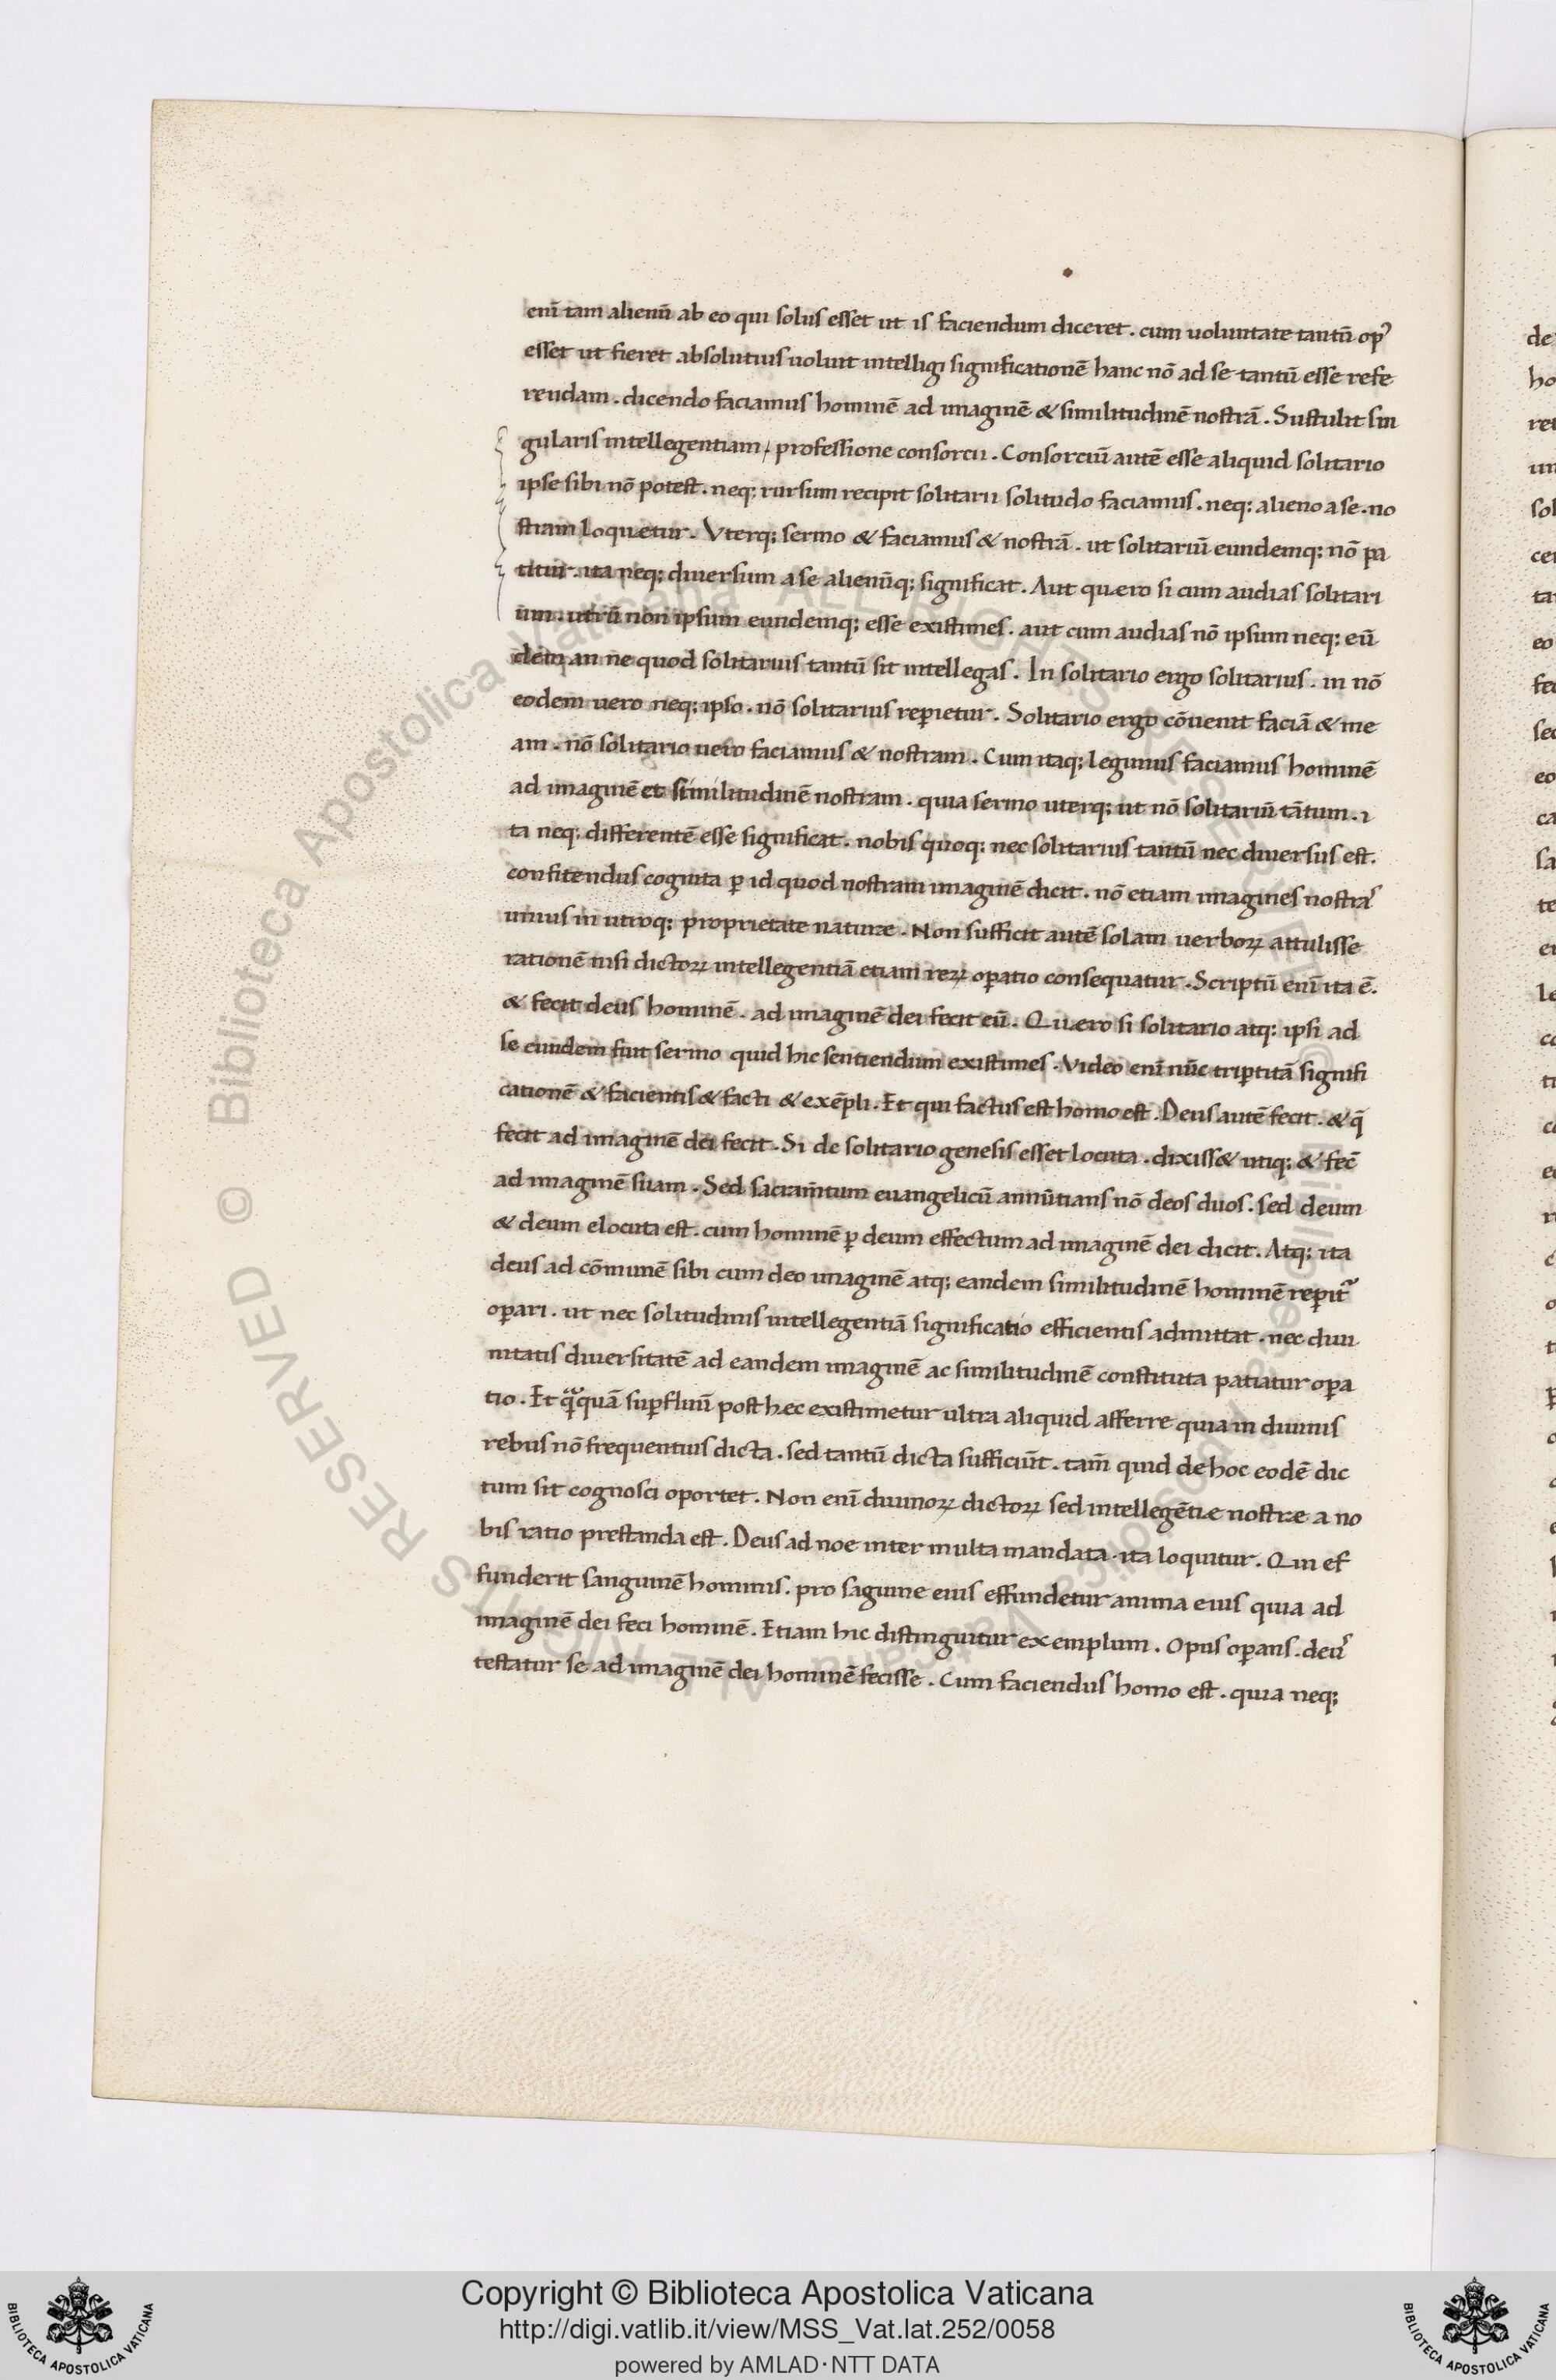 enī tam alienū ab eo qui solus esset ut is faciendum diceret. cum uoluntate tantū op᾽
esset ut fieret absolutius uoluit intelligi significationē hanc nō ad se tantū esse refe
rendam. dicendo faciamus hominē ad imaginē & similitudinē nostrā. Sustulit sin
gularis intellegentiam, professione consorcii. Consorciū autē esse aliquid solitario
ipse sibi nō potest. neq; rursum recipit solitarii solitudo faciamus. neq; alieno a se. no
stram loquetur. Vterq; sermo & faciamus & nostrā. ut solitariū eundemq; nō pa
titur. ita neq; diuersum a se alienūq; significat. Aut quero si cum audias solitari
um. utrū non ipsum eundemq; esse existimes. aut cum audias nō ipsum neq; eū
dem. an ne quod solitarius tantū sit intellegas. In solitario ergo solitarius. in nō
eodem uero neq; ipso. nō solitarius repietur. Solitario ergo cōuenit faciā & me
am. nō solitario uero faciamus & nostram. Cum itaq; legimus faciamus hominē
ad imaginē et similitudinē nostram. quia sermo uterq; ut nō solitariū tātum. i
ta neq; differentē esse significat. nobis quoq; nec solitarius tantū nec diuersus est.
confitendus cognita p id quod nostram imaginē dicit. nō etiam imagines nostras
unius in utroq; proprietate naturae. Non sufficit autē solam uerboꝝ attulisse
rationē nisi dictoꝝ intellegentiā etiam reꝝ opatio consequatur. Scriptū enī ita ē.
& fecit deus hominē. ad imaginē dei fecit eū. Quæro si solitario atq; ipsi ad
se eundem fuit sermo quid hic sentiendum existimes. Video enī nūc triptitā signifi
cationē & facientis & facti & exēpli. Et qui factus est homo est. Deus autē fecit. & q̄
fecit ad imaginē dei fecit. Si de solitario genesis esset locuta. dixiss& utiq; & fec̄
ad imaginē suam. Sed sacram̄tum euangelicū annūtians nō deos duos. sed deum
& deum elocuta est. cum hominē p deum effectum ad imaginē dei dicit. Atq; ita
deus ad cōmunē sibi cum deo imaginē atq; eandem similitudinē hominē repit᷑
opari. ut nec solitudinis intellegentiā significatio efficientis admittat. nec diui
nitatis diuersitatē ad eandem imaginē ac similitudinē constituta patiatur opa
tio. Et qᷓquā supfluū post hæc existimetur ultra aliquid afferre quia in diuinis
rebus nō frequentius dicta. sed tantū dicta sufficiūt. tam̄ quid de hoc eodē dic
tum sit cognosci oportet. Non enī diuinoꝝ dictoꝝ sed intellegētiæ nostræ a no
bis ratio prestanda est. Deus ad noe inter multa mandata. ita loquitur. Qui ef
funderit sanguinē hominis. pro saguine eius effundetur anima eius quia ad
imaginē dei feci hominē. Etiam hic distinguitur exemplum. Opus opans. deus
testatur se ad imaginē dei hominē fecisse. Cum faciendus homo est. quia neq;
Copyright © Biblioteca Apostolica Vaticana
http://digi.vatlib.it/view/MSS_Vat.lat.252/0058
powered by AMLAD·NTT DATA